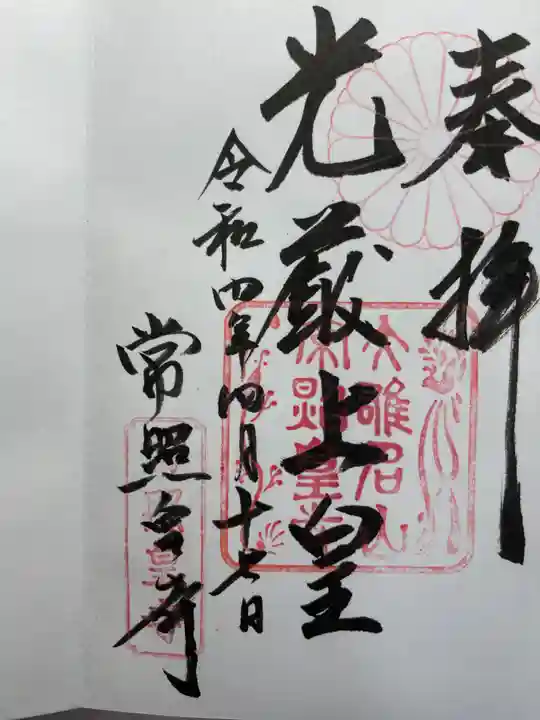 奉拝
光厳上皇
令和四年四月十七日
常照皇寺